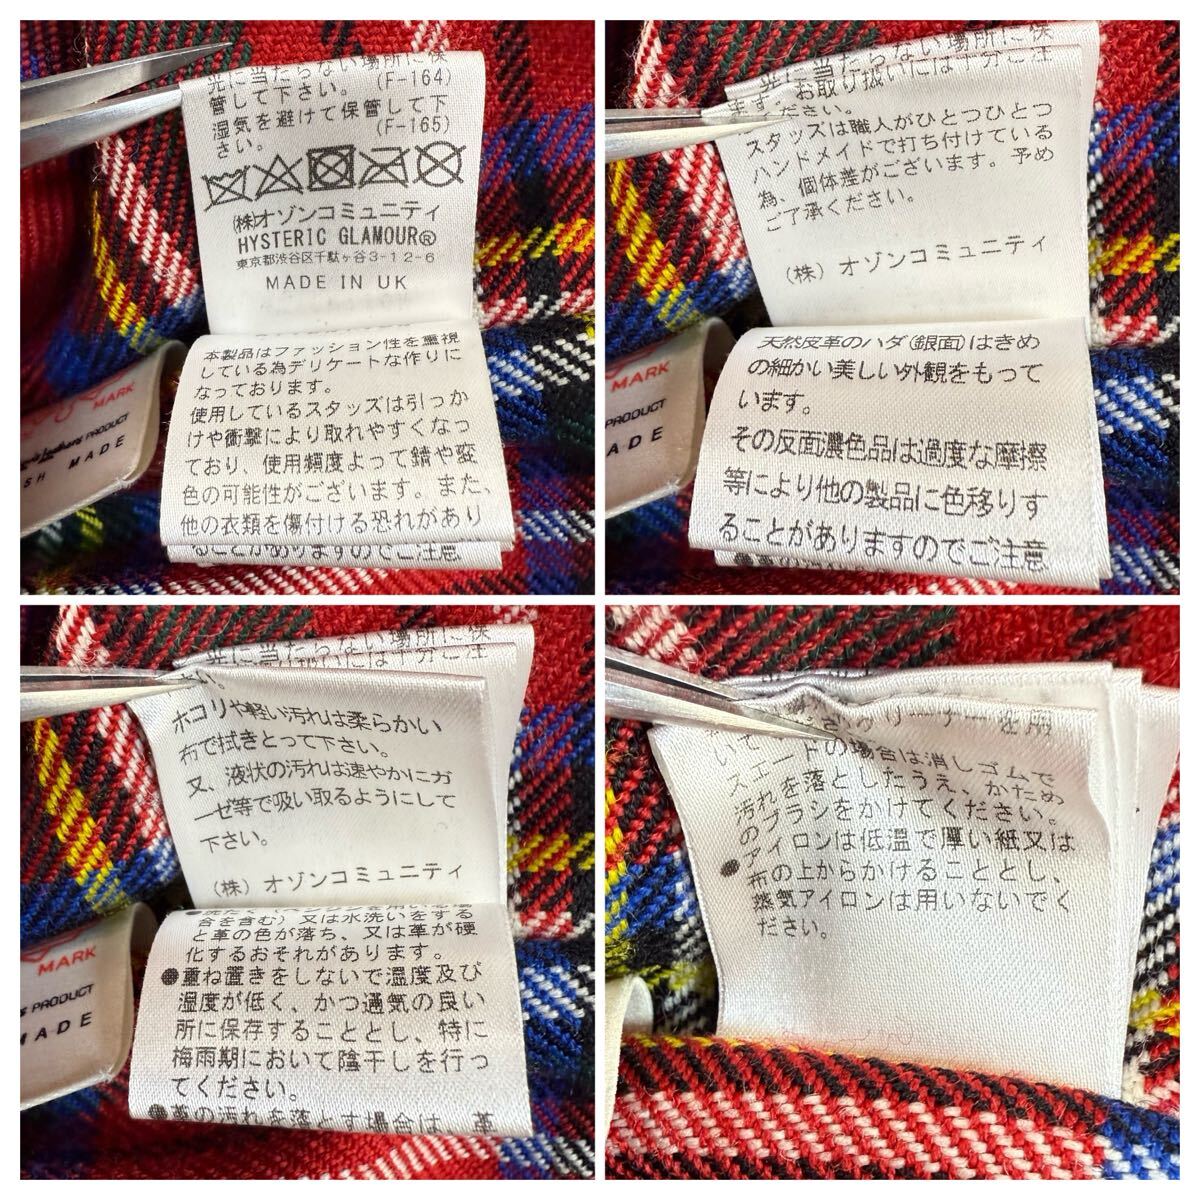 光に当たらない場所に保
管して下さい。(F-164)
湿気を避けて保管して下
さい。(F-165)
(株)オゾンコミュニティ
HYSTERIC GLAMOUR®
東京都渋谷区千駄ヶ谷3-12-6
MADE IN UK
本製品はファッション性を重視
している為デリケートな作りに
なっております。
使用しているスタッズは引っか
けや衝撃により取れやすくなっ
ており、使用頻度よって錆や変
色の可能性がございます。また、
他の衣類を傷付ける恐れがあり
ることがありますのでご注意
MARK
PRODUCT
SH MADE
光に当たらない場所に保
お取り扱いには十分ご注
ください。
スタッズは職人がひとつひとつ
ハンドメイドで打ち付けている
為、個体差がございます。予め
ご了承ください。
(株)オゾンコミュニティ
天然皮革のハダ(銀面)はきめ
の細かい美しい外観をもって
います。
その反面濃色品は過度な摩擦
等により他の製品に色移りす
ることがありますのでご注意
MARK
PRODUCT
ADE
光に当たらない場所に保
には十分ご注
い。
ホコリや軽い汚れは柔らかい
布で拭きとって下さい。
又、液状の汚れは速やかにガ
ーゼ等で吸い取るようにして
下さい。
(株)オゾンコミュニティ
合を含む)又は水洗いをする
と革の色が落ち、又は革が硬
化するおそれがあります。
●重ね置きをしないで温度及び
湿度が低く、かつ通気の良い
所に保存することとし、特に
梅雨期において陰干しを行っ
てください。
●革の汚れを落とす場合は、革
MARK
PRODUCT
MADE
クリーナーを用
いて
スエードの場合は消しゴムで
汚れを落としたうえ、かため
のブラシをかけてください。
●アイロンは低温で厚い紙又は
布の上からかけることとし、
蒸気アイロンは用いないでく
ださい。